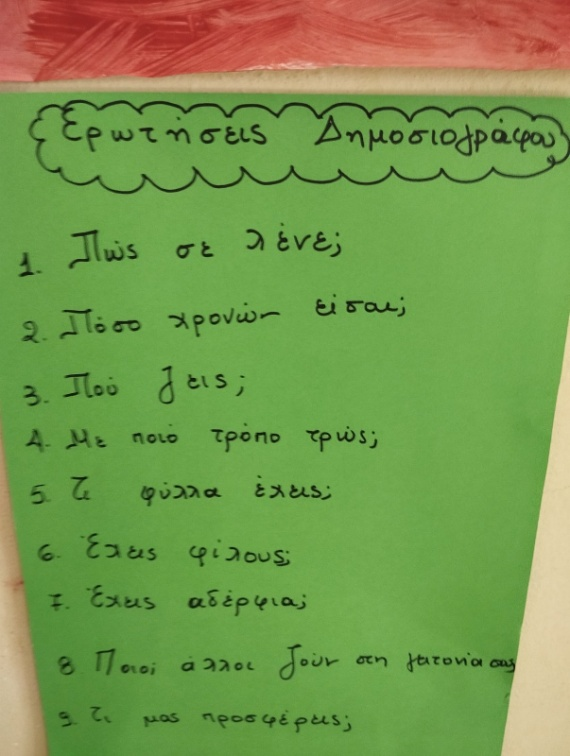 Ερωτήσεις Δημοσιογράφου
1. Πώς σε λένε;
2. Πόσο χρονών είσαι;
3. Πού ζεις;
4. Με ποιό τρόπο τρώς;
5. Τι φύλλα έχεις;
6. Έχεις φίλους;
7. Έχεις αδέρφια;
8 Ποιοί άλλοι ζούν στη γειτονία σας
9. Τι μας προσφέρεις;